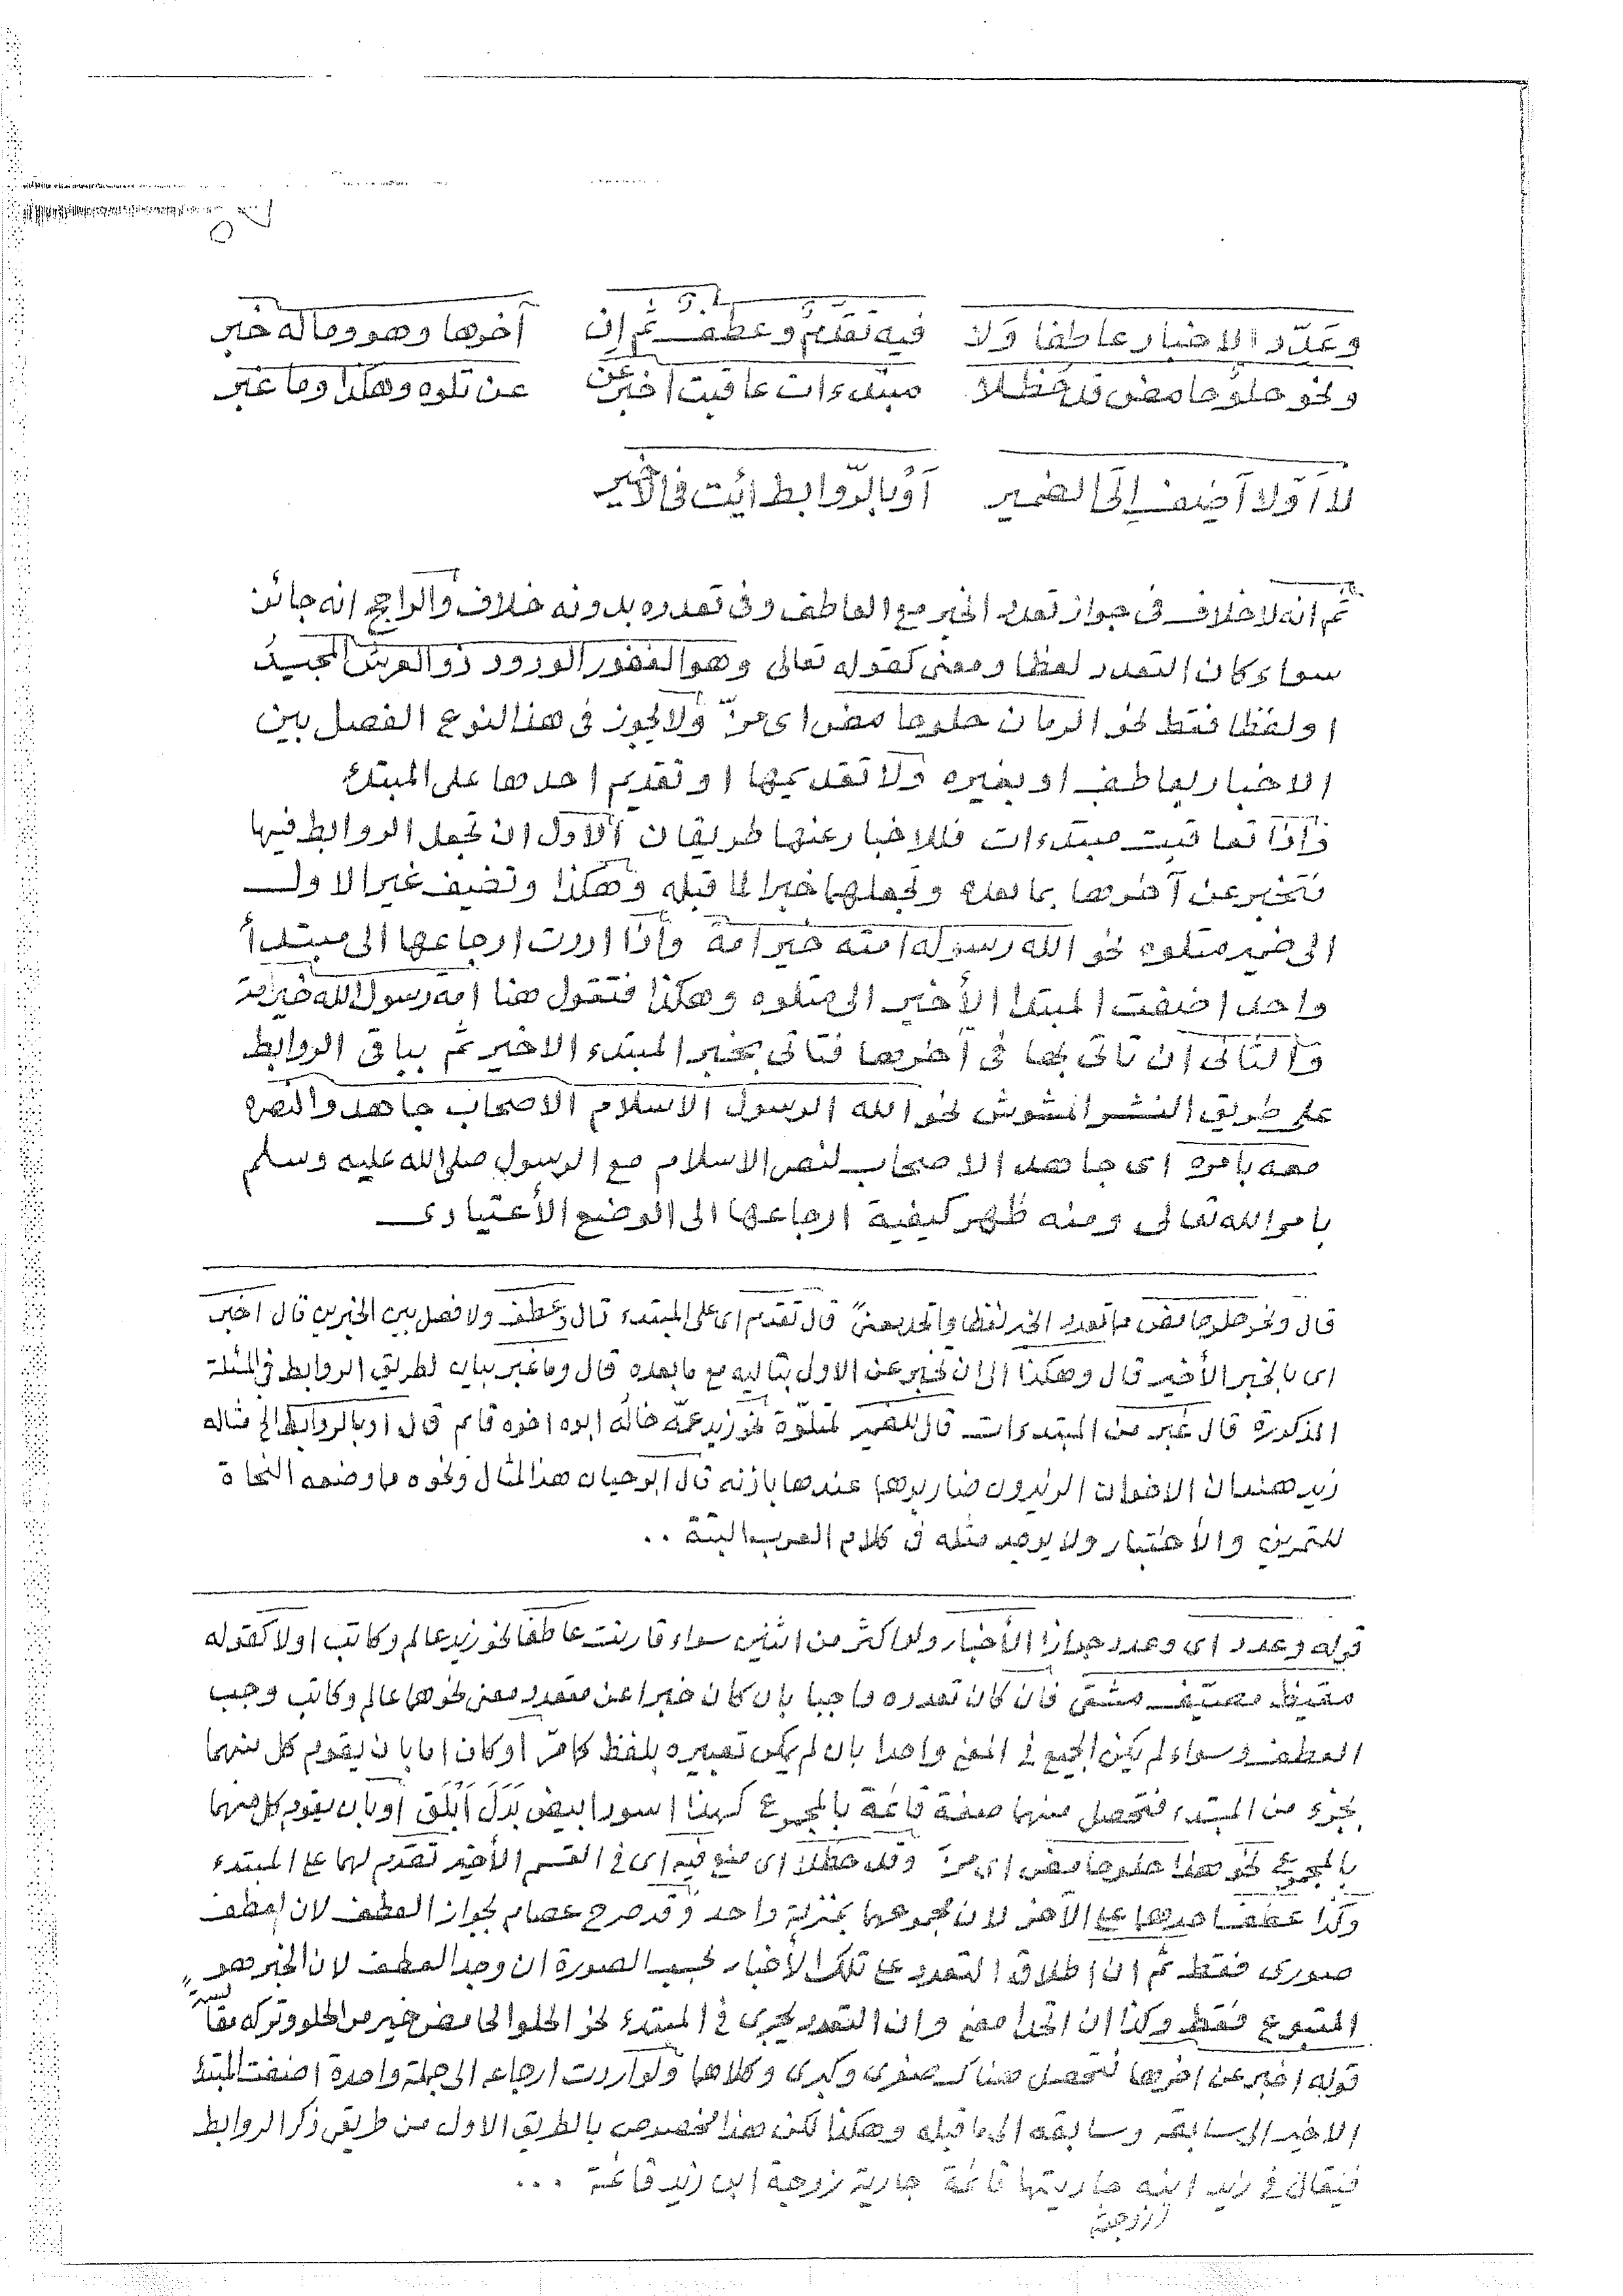 وعدّد الاخبار عاطفا ولا فيه تقدّم وعطف ثم إن آخرها وهو وماله خبر
ونحو حلو حامض قد حظلا مبتدءات عاقبت اخبر عن عن تلوه وهكذا وما غبر
لا أوّلا أضيف إلى الضمير أو بالرّوابط ائت فى الأخير
ثم انه لا خلاف فى جواز تعدد الخبر مع العاطف وفى تعدده بدونه خلاف والراجح انه جائز
سواء كان التعدد لفظا ومعنى كقوله تعالى وهو الغفور الودود ذو العرش المجيدُ
او لفظا فقط نحو الرمان حلو حامض اى مزّ ولا يجوز فى هذا النوع الفصل بين
الاخبار بعاطف او بغيره ولا تقديمها او تقديم احدها على المبتدء
وأذا تعاقبت مبتدءات فللاخبار عنها طريقان ألاول ان تجعل الروابط فيها
فتخبر عن آخرها بما بعده وتجعلها خبرا لما قبله وهكذا وتضيف غير الاول
الى ضمير متلوه نحو الله رسوله امته خير امة وأذا اردت ارجاعها الى مبتدأ
واحد اضفت المبتدا الأخير الى متلوه وهكذا فتقول هنا امة رسول الله خير امة
وألثانى ان تاتى بها فى آخرها فتاتى بخبر المبتدء الاخير ثم بباقى الروابط
على طريق النشر المشوش نحو الله الرسول الاسلام الاصحاب جاهدوا لنصره
معه بامره اى جاهد الاصحاب لنصر الاسلام مع الرسول صلى الله عليه وسلم
بامر الله تعالى ومنه ظهر كيفية ارجاعها الى الوضع الأعتيادى
قال ونحو حلو حامض مما تعدد الخبر لفظا واتحد معنىً قال تقدم اى على المبتدء قال وعطف ولا فصل بين الخبرين قال اخبر
اى بالخبر الأخير قال وهكذا الى ان تخبر عن الاول بتاليه مع ما بعده قال وما غبر بيان لطريق الروابط فى المثلة
المذكورة قال غبر من المبتدءات قال للضمير لمتلوّة نحو زيد عمّه خاله ابوه اخوه قائم قال او بالروابط الخ مثاله
زيد هندان الاخوان الزيدون ضاربوهما عندها باذنه قال ابوحيان هذا المثال ونحوه مما وضعه النحاة
للتمرين والأختبار ولا يوجد مثله فى كلام العرب البتة ..
قوله وعدد اى وعدد جوازا الأخبار ولو اكثر من اثنين سواء قارنت عاطفا نحو زيد عالم وكاتب اولا كقوله
مقيظ مصيّف مشتى فان كان تعدده واجبا بان كان خبرا عن متعدد معنى نحو هما عالم وكاتب وجب
العطف وسواء لم يكن الجميع فى المعنى واحدا بان لم يكن تعبيره بلفظ كامر او كان اما بان يقوم كل منهما
بجزء من المبتدء فتحصل منهما صفة قائمة بالمجموع كهذا اسود ابيض بَدَلَ أبلَق أو بان يقوم كل منهما
بالمجموع نحو هذا حلو حامض اى مزّ وقد حظلا اى منع فيه اى فى القسم الأخير تقدم لهما على المبتدء
وكذا عطف احدهما على الآخر لان مجموعهما بمنزلة واحد وقد صرح عصام بجواز العطف لان العطف
صورى فقط ثم ان اطلاق التعدد على تلك الأخبار بحسب الصورة ان وجد العطف لان الخبر هو
المتبوع فقط وكذا ان اتحدا معنى وان التعدد يجرى فى المبتدء نحو الحلو الحامض خير من الحلو وتركه
قوله اخبر عن اخرها فتحصل هناك صغرى وكبرى وكلاهما ولو اردت ارجاعه الى جملة واحدة اضفت المبتدء
الاخير الى سابقه وسابقه الى ما قبله وهكذا لكن هذا مخصوص بالطريق الاول من طريقى ذكر الروابط
فيقال فى زيد ابنه جاريتها قائمة جارية زوجة ابن زيد قائمة ...
زوجته